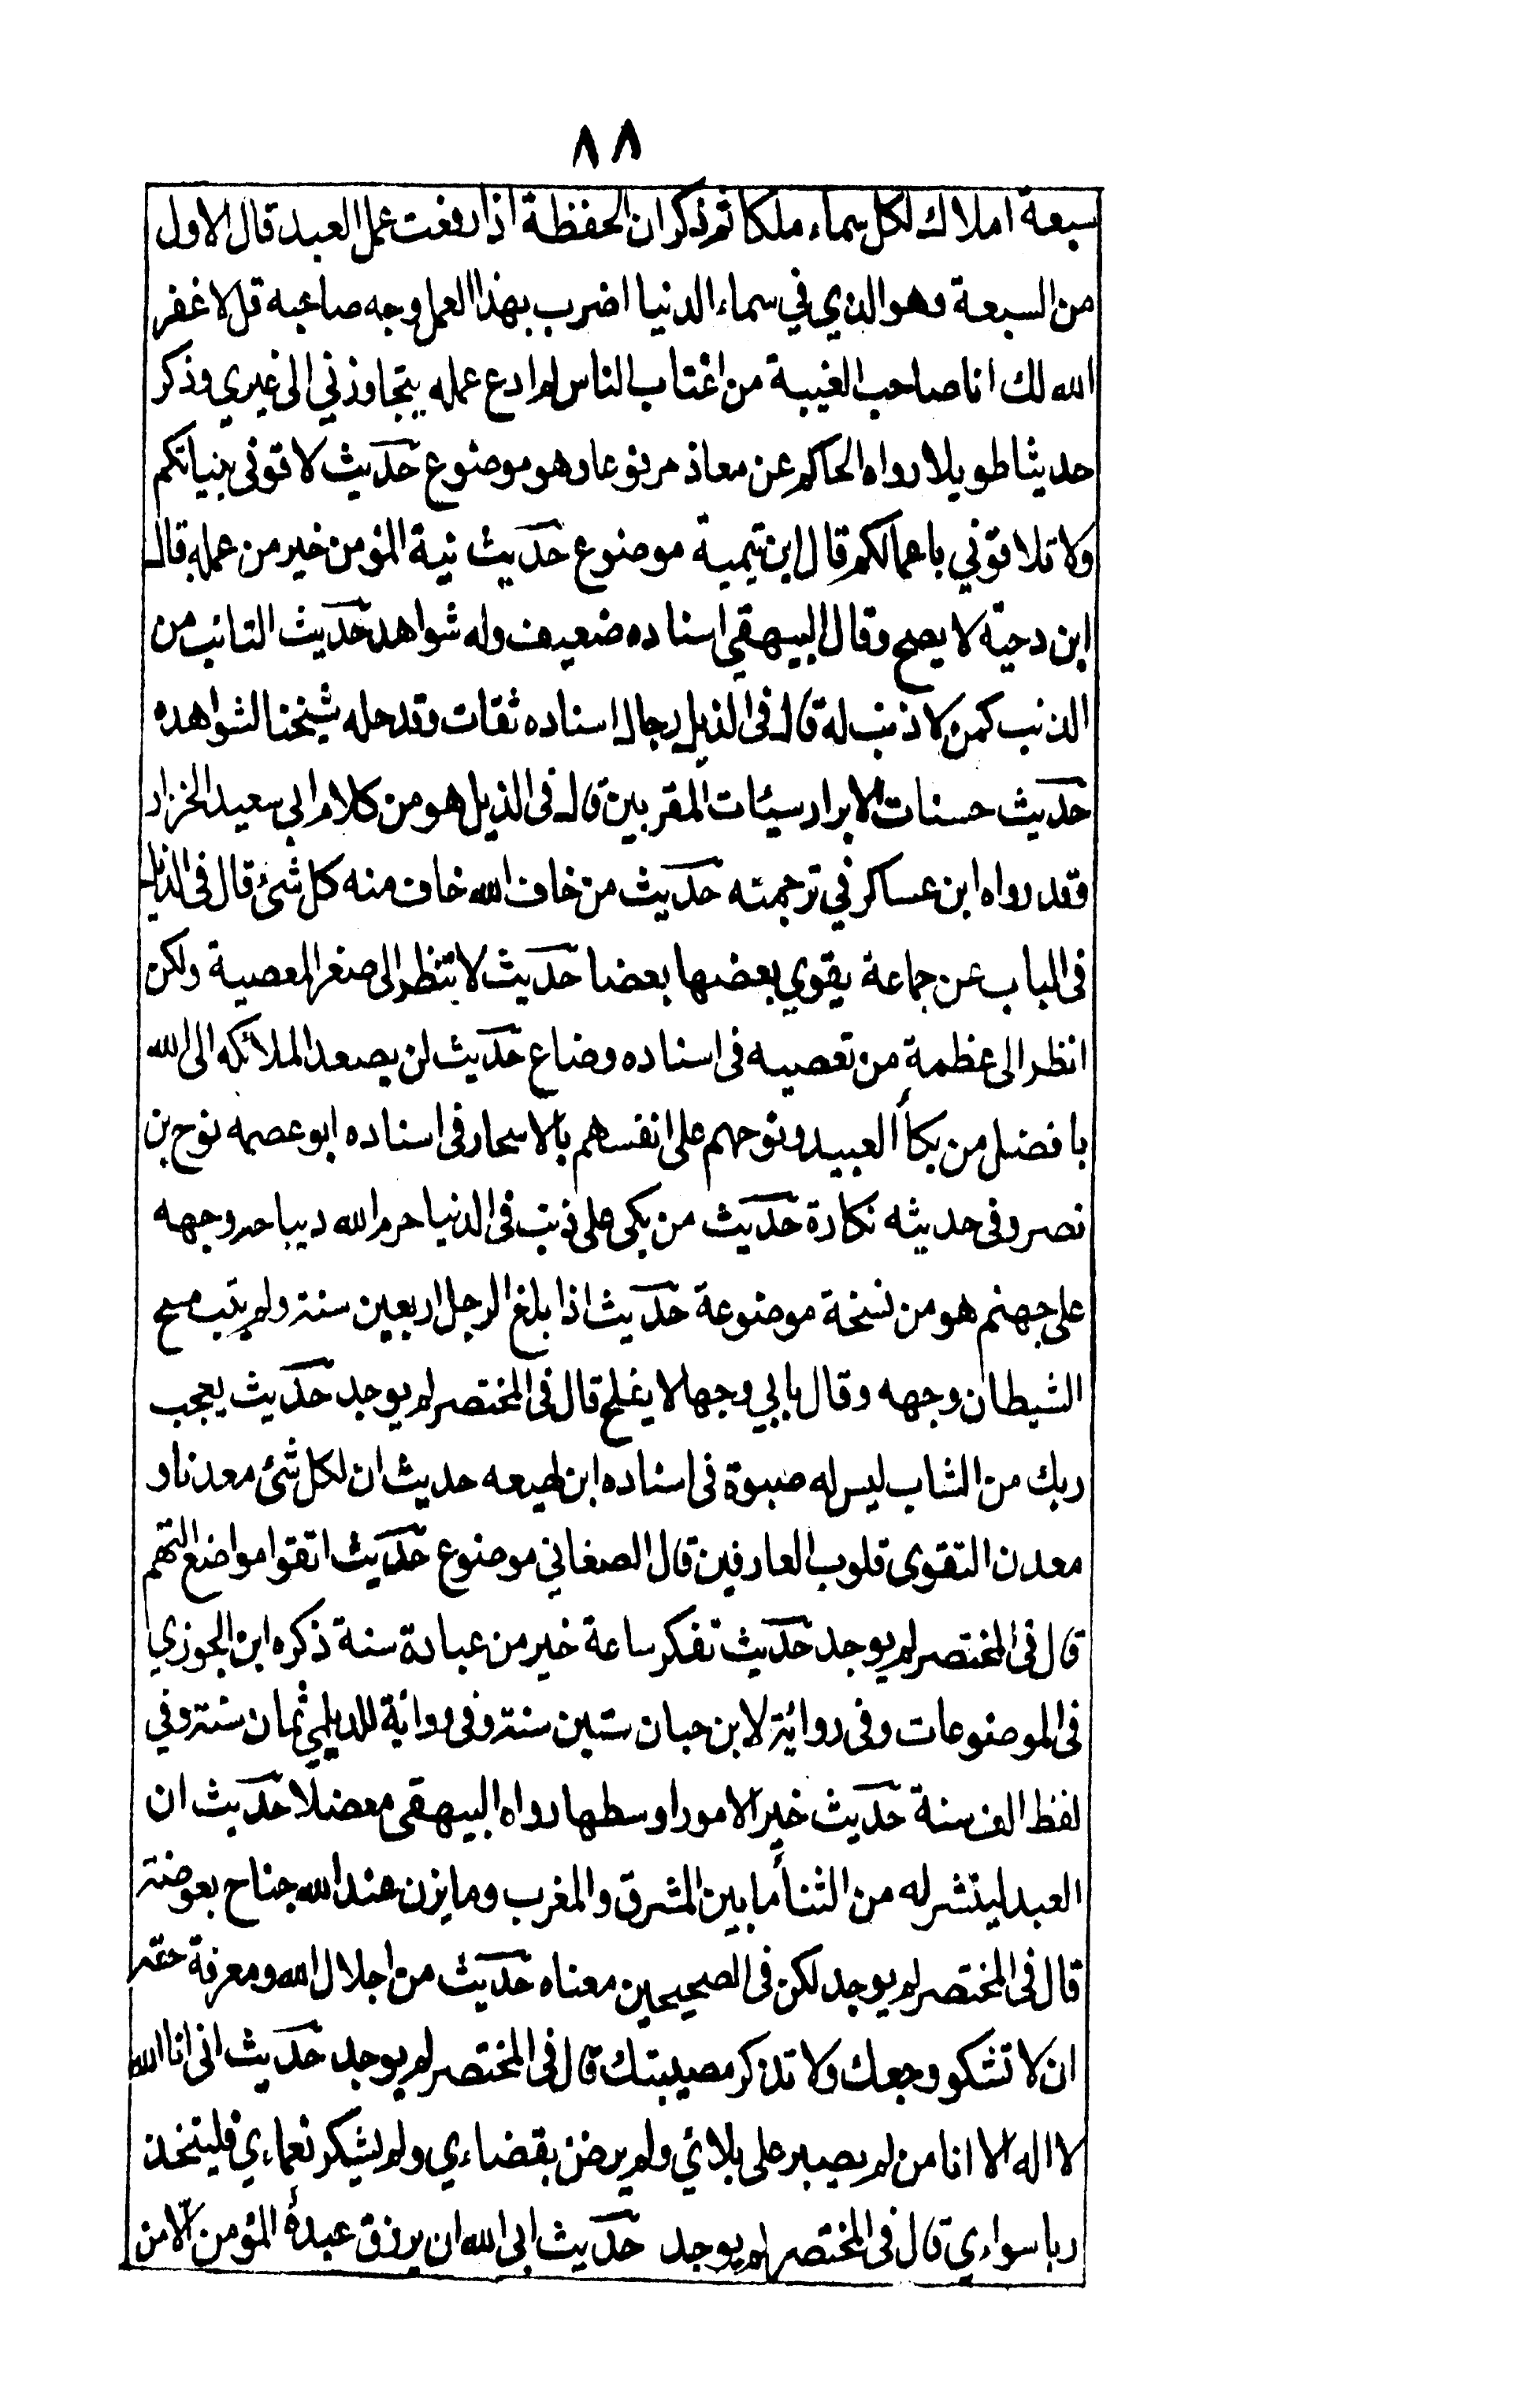 ٨٨
سبعة املاك لكل سماء ملكا ثم ذكر ان الحفظة اذا رفعت عمل العبد قال الاول
من السبعة وهو الذي في سماء الدنيا اضرب بهذا العمل وجه صاحبه قل لا غفر
الله لك انا صاحب الغيبة من اغتاب الناس لم ادع عمله يتجاوزني الى غيري وذكر
حديثا طويلا رواه الحاكم عن معاذ مرفوعا وهو موضوع حديث لاقونى بنياتكم
ولا تلاقوني باعمالكم قال ابن تيمية موضوع حديث نية المؤمن خير من عمله قال
ابن دحية لا يصح وقال البيهقي اسناده ضعيف وله شواهد حديث التائب من
الذنب كمن لا ذنب له قال فى الذيل رجال اسناده ثقات وقد حله شيخنا لشواهده
حديث حسنات الابرار سيئات المقربين قال فى الذيل هو من كلام ابي سعيد الخزار
وقد رواه ابن عساكر في ترجمته حديث من خاف الله خاف منه كل شئ قال فى الذيل
فى الباب عن جماعة يقوي بعضها بعضا حديث لا تنظر الى صغر المعصية ولكن
انظر الى عظمة من تعصيه فى اسناده وضاع حديث لن يصعد الملائكه الى الله
بافضل من بكأ العبيد ونوحهم على انفسهم بالاسحار فى اسناده ابو عصمه نوح بن
نصر وفى حديثه نكارة حديث من بكى على ذنب فى الدنيا حرم الله ديباحه وجهه
على جهنم هو من نسخة موضوعة حديث اذا بلغ الرجل اربعين سنة ولم يتب مسح
الشيطان وجهه وقال بابي وجها لا يفلح قال فى المختصر لم يوجد حديث يعجب
ربك من الشاب ليس له صبوة فى اسناده ابن لهيعه حديث ان لكل شئ معدنا و
معدن التقوى قلوب العارفين قال الصغاني موضوع حديث اتقوا مواضع التهم
قال فى المختصر لم يوجد حديث تفكر ساعة خير من عبادة سنة ذكره ابن الجوزي
فى الموضوعات وفى رواية لابن حبان ستين سنة وفى رواية للديلمي ثمان سنة وفي
لفظ الف سنة حديث خير الامور اوسطها رواه البيهقى معضلا حديث ان
العبد لينشر له من الثنأ ما بين المشرق والمغرب وما يزن عند الله جناح بعوضة
قال فى المختصر لم يوجد لكن فى الصحيحين معناه حديث من اجلال الله ومعرفة حقه
ان لا تشكو وجعك ولا تذكر مصيبتك قال فى المختصر لم يوجد حديث انى انا الله
لا اله الا انا من لم يصبر على بلائي ولم يرض بقضاءي ولم يشكر نعماءي فليتخذ
ربا سواءي قال فى المختصر لم يوجد حديث ابى الله ان يرزق عبده المؤمن الا من